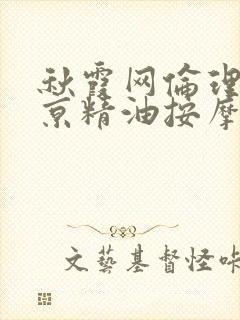 秋霞网倫理
京精油按摩
文藝基督怪咔